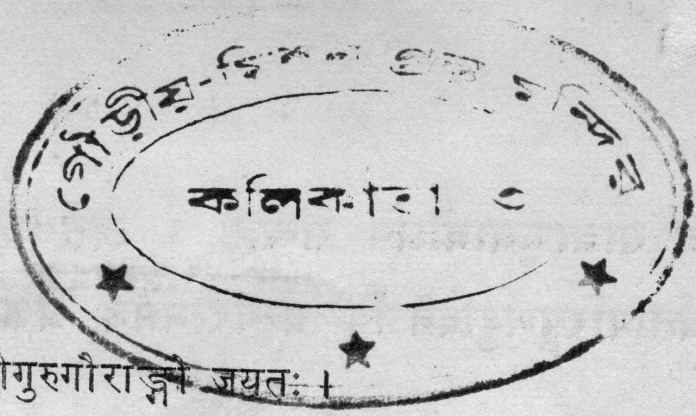 গৌড়ীয়-মিশন গ্রন্থ মন্দির
কলিকাতা
श्रीगुरुगौराङ्गौ जयतः ।